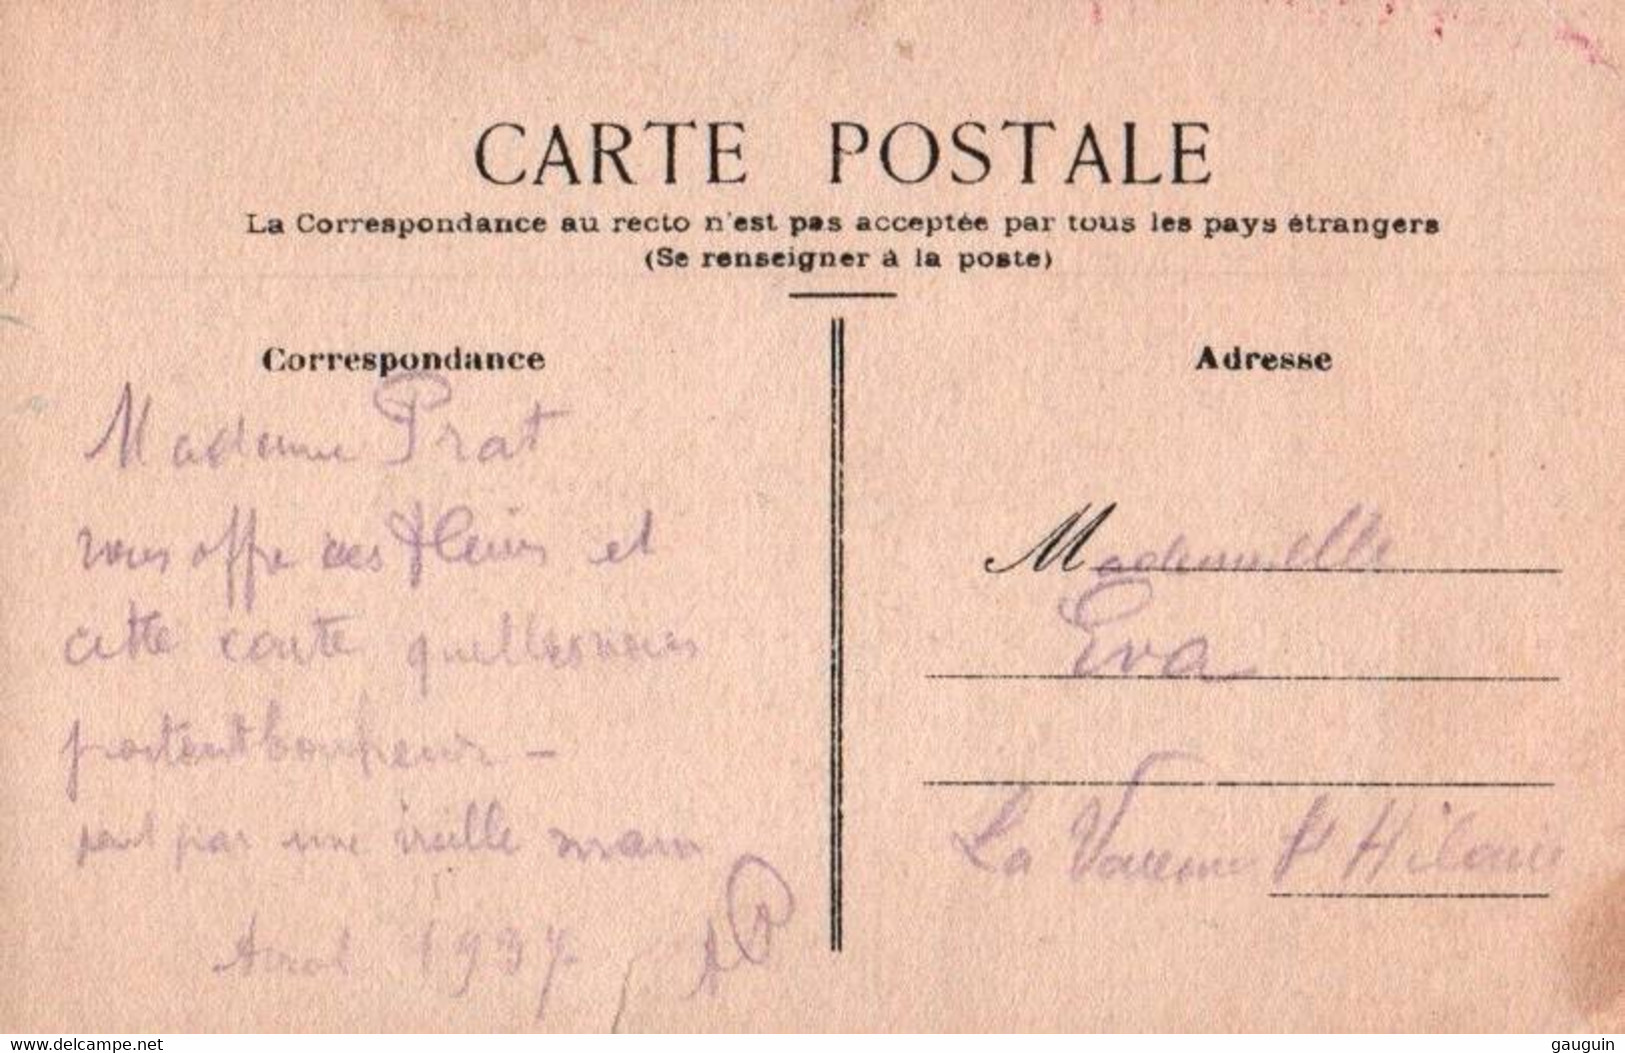 CARTE POSTALE
La Correspondance au recto n'est pas acceptée par tous les pays étrangers
(Se renseigner à la poste)
Correspondance
Madame Prat
vous offre ces fleurs et
cette carte quelles vous
portent bonheur –
par une vieille main
Avril 1937
Adresse
Mademoiselle
Eva
La Varenne St Hilaire
delcampe.net
gauguin